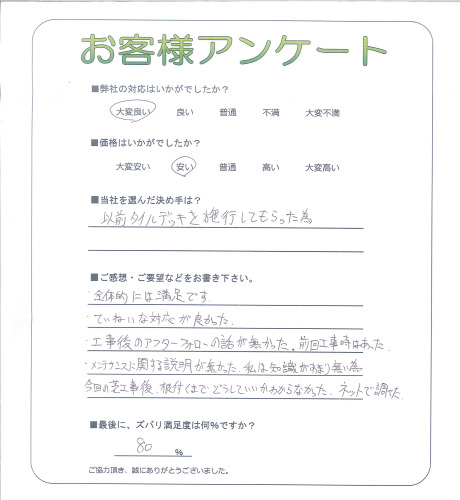 お客様アンケート
■弊社の対応はいかがでしたか？
大変良い 良い 普通 不満 大変不満
■価格はいかがでしたか？
大変安い 安い 普通 高い 大変高い
■当社を選んだ決め手は？
以前タイルデッキを施行してもらった為
■ご感想・ご要望などをお書き下さい。
・全体的には満足です。
・ていねいな対応が良かった.
・工事後のアフターフォローの話が無かった. 前回工事時はあった.
・メンテナンスに関する説明が無かった. 私は知識があまり無い為
今回の芝工事後、根付くまでどうしていいかわからなかった. ネットで調べた.
■最後に、ズバリ満足度は何％ですか？
80 ％
ご協力頂き、誠にありがとうございました。